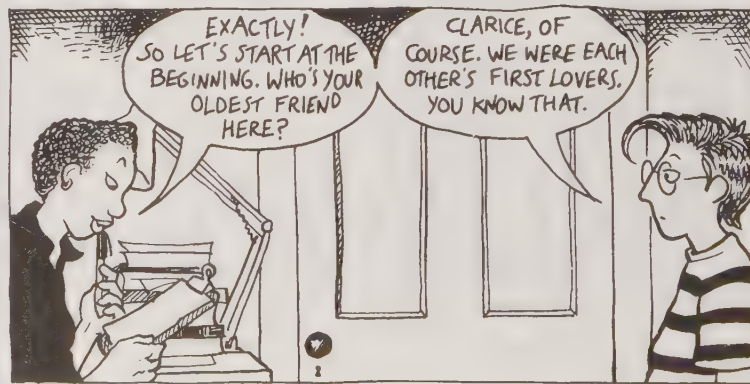 EXACTLY!
SO LET'S START AT THE
BEGINNING. WHO'S YOUR
OLDEST FRIEND
HERE?
CLARICE, OF
COURSE. WE WERE EACH
OTHER'S FIRST LOVERS.
YOU KNOW THAT.